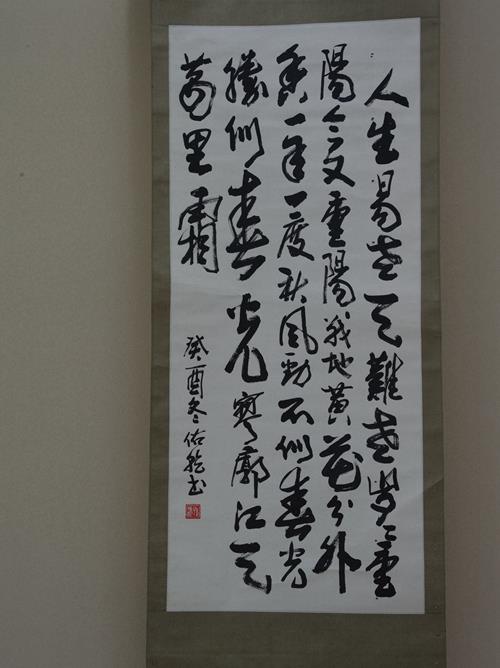 人生易老天難老歲々重
陽今又重陽战地黃花分外
香一年一度秋風勁不似春光
勝似春光寥廓江天
萬里霜
癸酉冬佑乾书